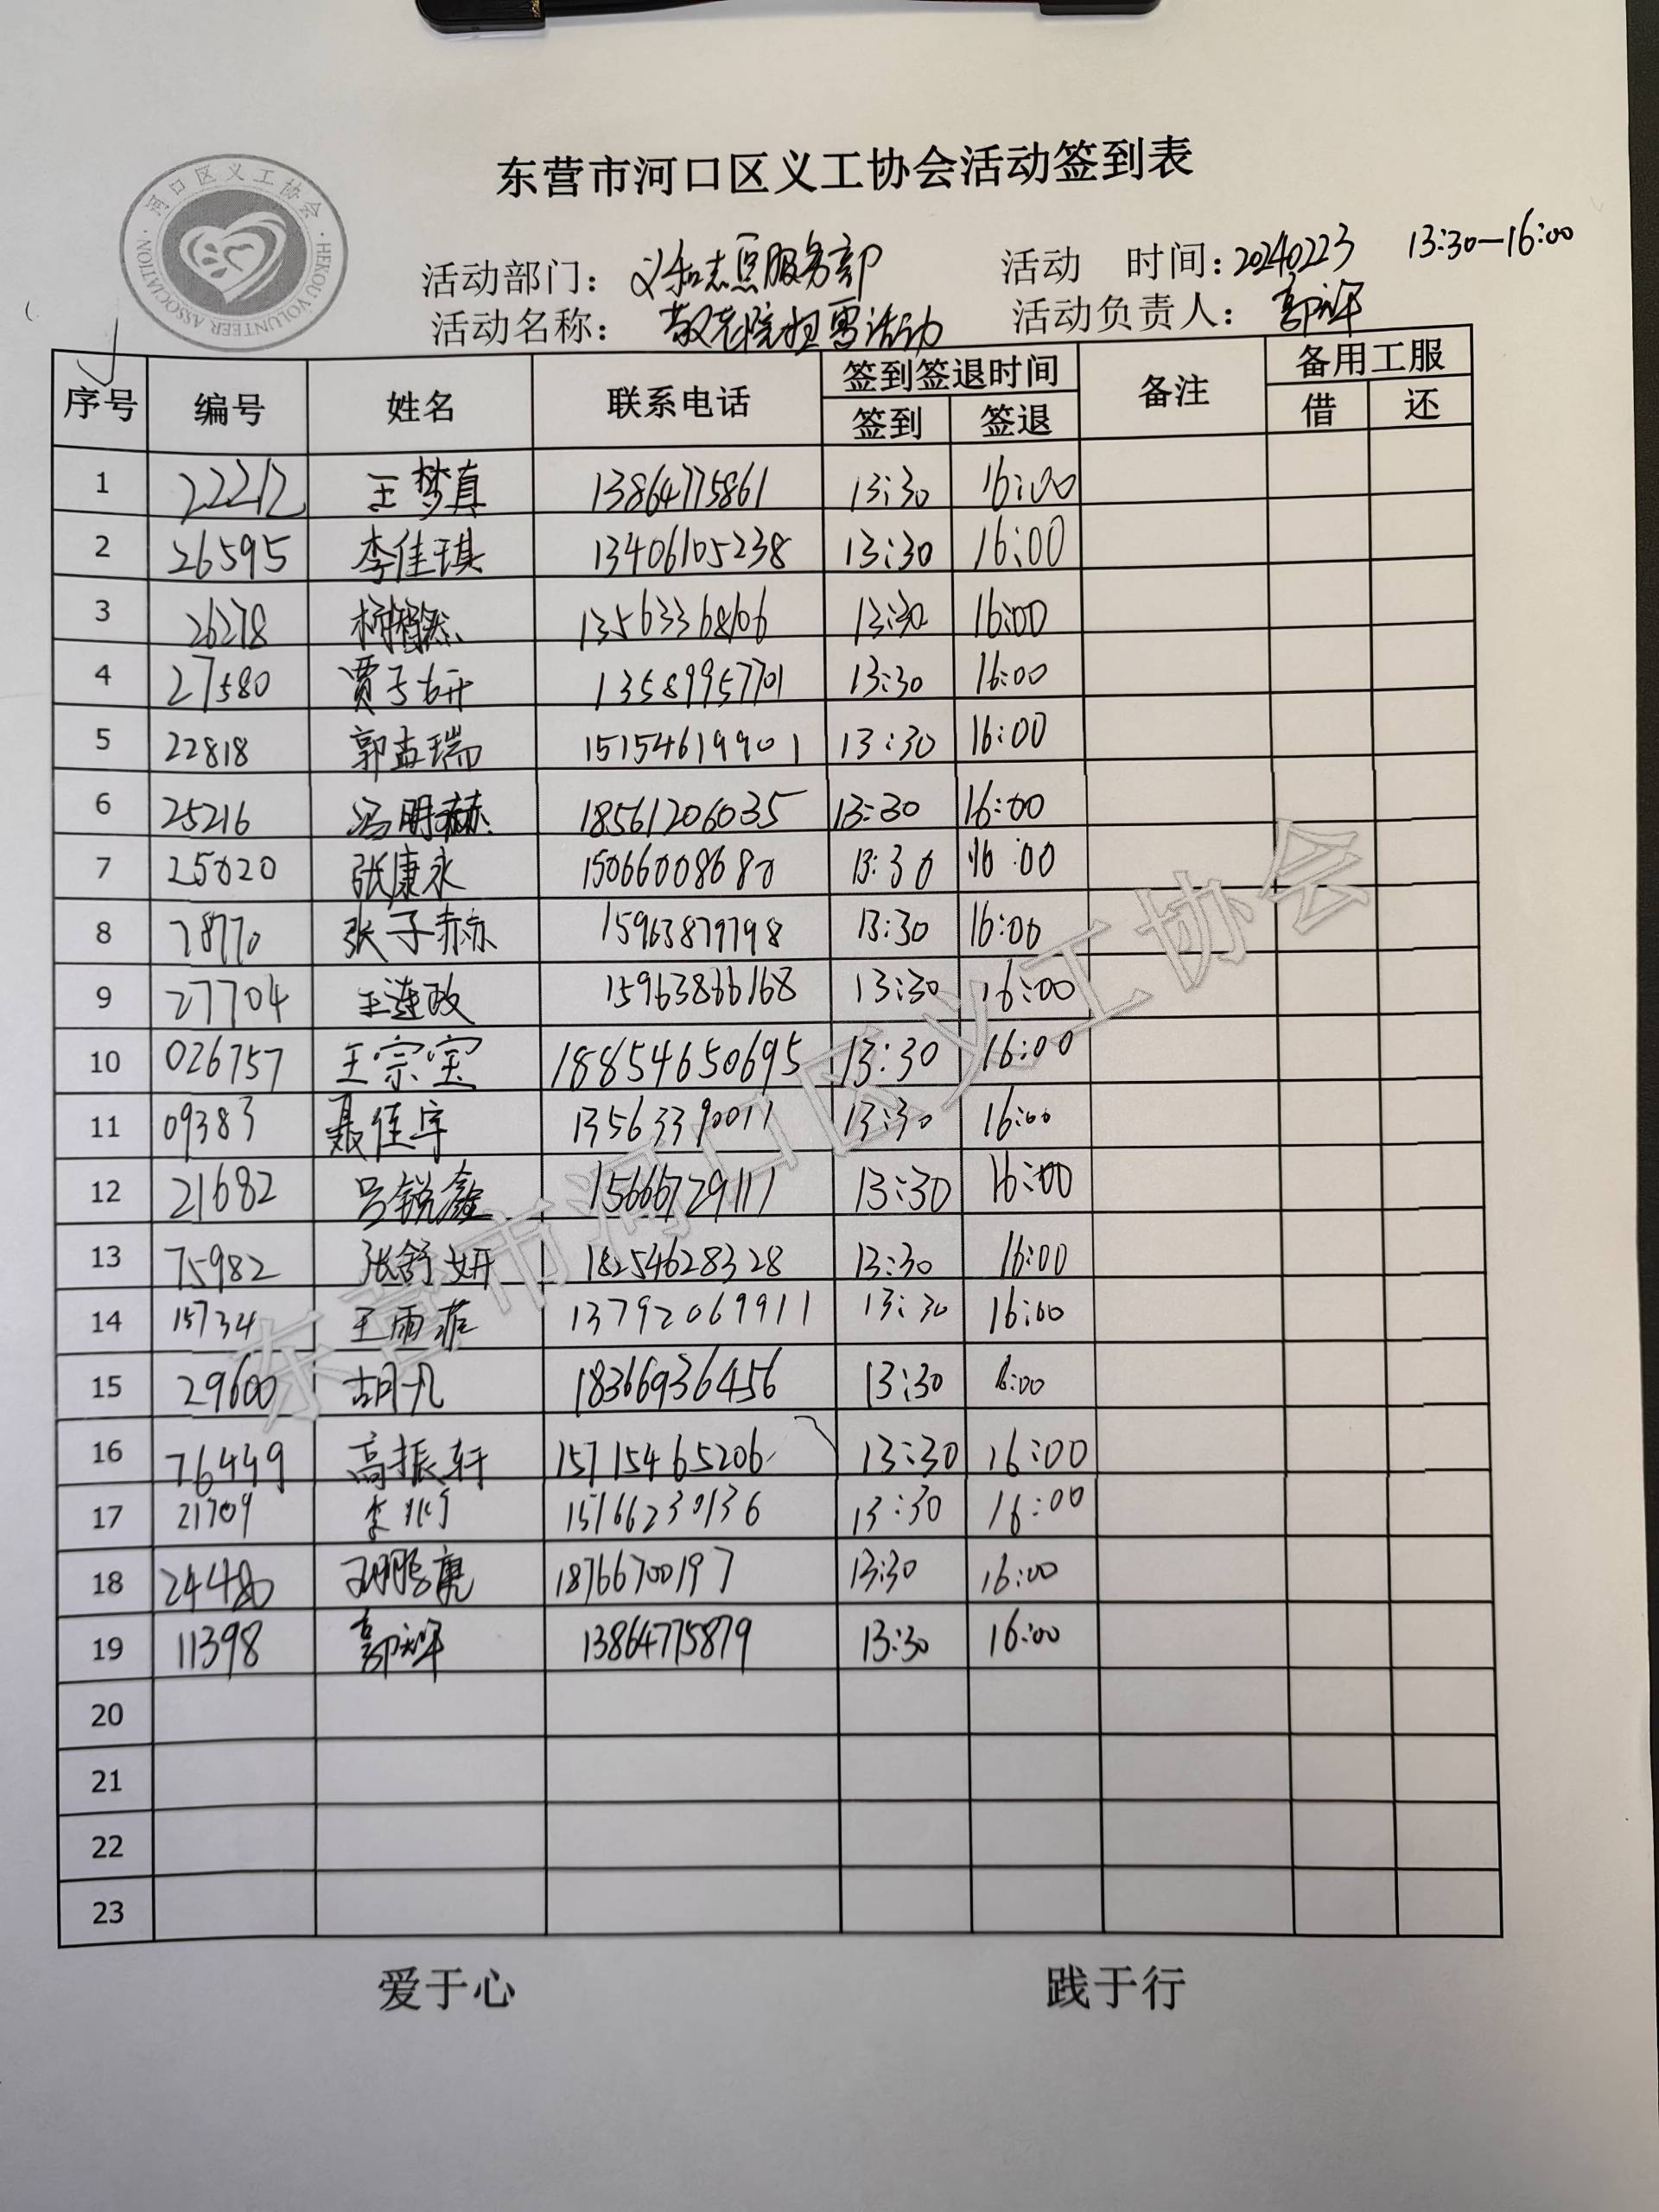 东营市河口区义工协会活动签到表
河口区义工协会
HEKOU VOLUNTEER ASSOCIATION
活动部门: 义和志愿服务部 活动 时间: 20240223 13:30-16:00
活动名称: 敬老院扫雪活动 活动负责人:
序号 编号 姓名 联系电话 签到签退时间 备注 备用工服
签到 签退 借 还
1 22212 王梦真 13864775861 13:30 16:00
2 26595 李佳琪 13406105238 13:30 16:00
3 26278 13563368606 13:30 16:00
4 27580 贾子妍 13589957701 13:30 16:00
5 22818 郭孟瑞 15154619901 13:30 16:00
6 25216 冯明赫 18561206035 13:30 16:00
7 25020 张康永 15066008680 13:30 16:00
8 28770 张子赫 15963879798 13:30 16:00
9 27704 王连政 15963866168 13:30 16:00
10 026757 王宗宝 18854650695 13:30 16:00
11 09383 聂佳宇 13563390011 13:30 16:00
12 21682 吕锐鑫 15666729111 13:30 16:00
13 75982 张舒妍 18254628328 13:30 16:00
14 15734 王雨菲 13792069911 13:30 16:00
15 29600 胡凡 18366936456 13:30 16:00
16 76449 高振轩 15715465206 13:30 16:00
17 21709 15166230136 13:30 16:00
18 24480 18766700197 13:30 16:00
19 11398 13864775879 13:30 16:00
20
21
22
23
东营市河口区义工协会
爱于心 践于行